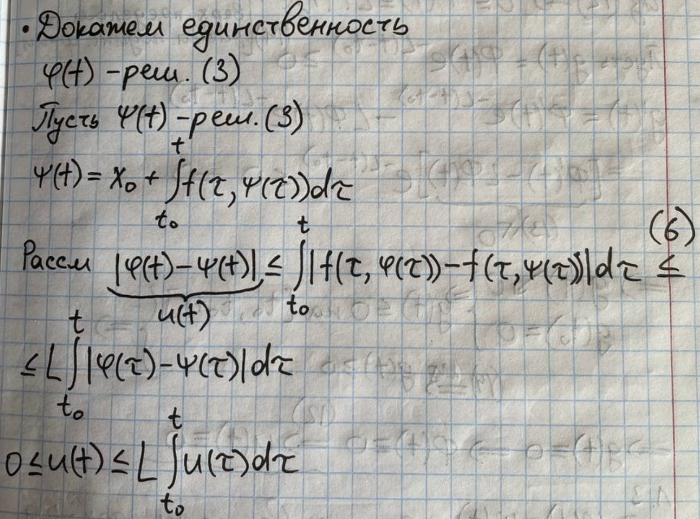 • Докажем единственность
φ(t) – реш. (3)
Пусть ψ(t) – реш. (3)
ψ(t) = x₀ + ∫_{t₀}^{t} f(τ, ψ(τ))dτ
(6)
Рассм |φ(t) – ψ(t)| ≤ ∫_{t₀}^{t} |f(τ, φ(τ)) – f(τ, ψ(τ))|dτ ≤
u(t)
≤ L ∫_{t₀}^{t} |φ(τ) – ψ(τ)|dτ
0 ≤ u(t) ≤ L ∫_{t₀}^{t} u(τ)dτ